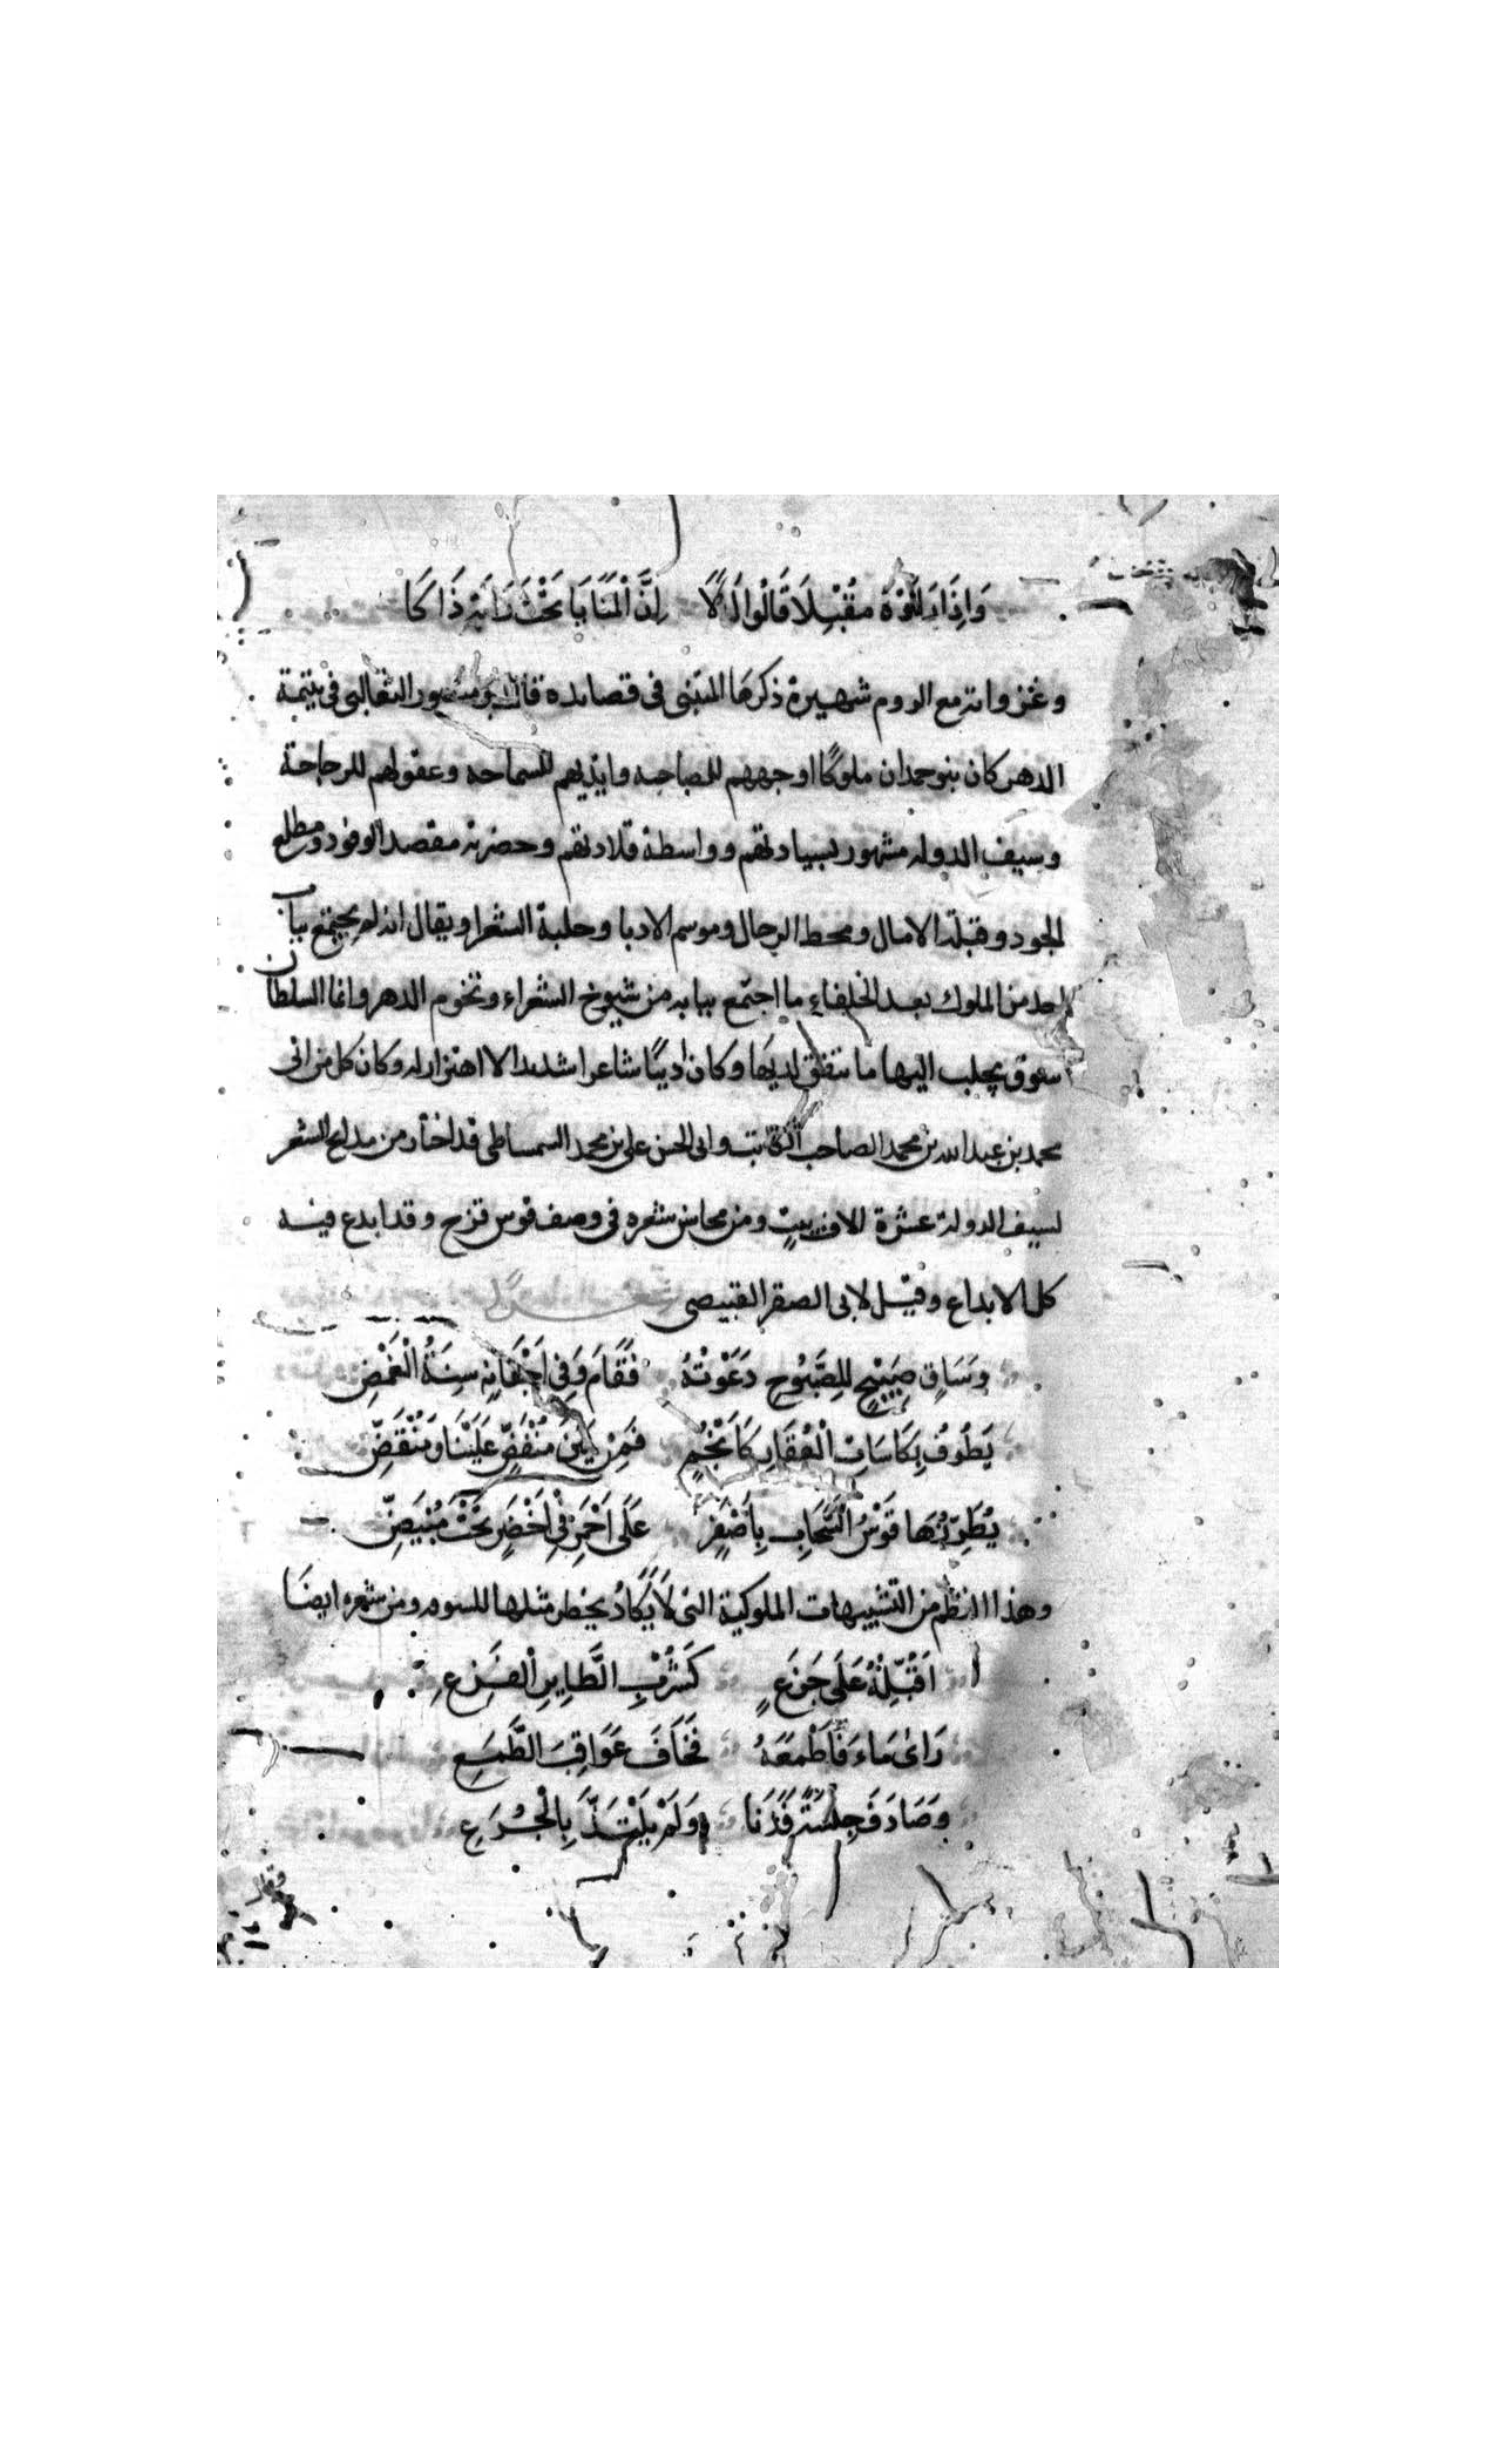 وَاِذَا رَاَوْهُ مُقْبِلًا قَالُوا اَلَا اِنَّ الْمَنَايَا تَحْتَ رَايَةِ ذَاكَا
وغزواته مع الروم شهيرة ذكرها المتنبى فى قصائده قال ابو منصور الثعالبى فى يتيمة
الدهر كان بنو حمدان ملوكًا اوجههم للصباحه وايديهم للسماحه وعقولهم للرجاحة
وسيف الدوله مشهور بسيادتهم وواسطة قلادتهم وحضرته مقصد الوفود ومطلع
الجود وقبلة الامال ومحط الرحال وموسم الادبا وحلبة الشعرا ويقال انه لم يجتمع بباب
احد من الملوك بعد الخلفاء ما اجتمع ببابه من شيوخ الشعراء ونجوم الدهر وانما السلطان
سوق يجلب اليها ما ينفق لديها وكان اديبًا شاعرا شديد الاهتزاز له وكان كل من ابى
محمد بن عبد الله بن محمد الصاحب الكاتب وابى الحسن على بن محمد السمساطى قد اختار من مدايح الشعر
لسيف الدولة عشرة الاف بيتٍ ومن محاسن شعره فى وصف قوس قزح وقد ابدع فيه
كل الابداع وقيل لابى الصقر القبيصى
وَسَاقٍ صَبِيْحٍ لِلصَّبُوحِ دَعَوْتُهُ فَقَامَ وَفِى اَجْفَانِهِ سِنَةُ الْغَمْضِ
يَطُوفُ بِكَاسَاتِ الْعُقَارِ كَاَنْجُمٍ فَمِنْ بَيْنِ مُنْفَضٍّ عَلَيْنَا وَمُنْقَضِّ
يُطَرِّزُهَا قَوْسُ السَّحَابِ بِاَصْفَرٍ عَلَى اَحْمَرٍ فِى اَخْضَرٍ تَحْتَ مُبْيَضِّ
وهذا النظم من التشبيهات الملوكية التى لَا يَكَادُ يخطر مثلها للسوقه ومن شعره ايضًا
اُقَبِّلُهُ عَلَى جَزَعٍ كَشُرْبِ الطَّايِرِ الْفَزِعِ
رَاىَ مَاءَ فَاَطْمَعَهُ فَخَافَ عَوَاقِبَ الطَّمَعِ
وَصَادَفَ خِلْسَةً فَدَنَا وَلَمْ يَلْتَذَّ بِالْجُرَعِ